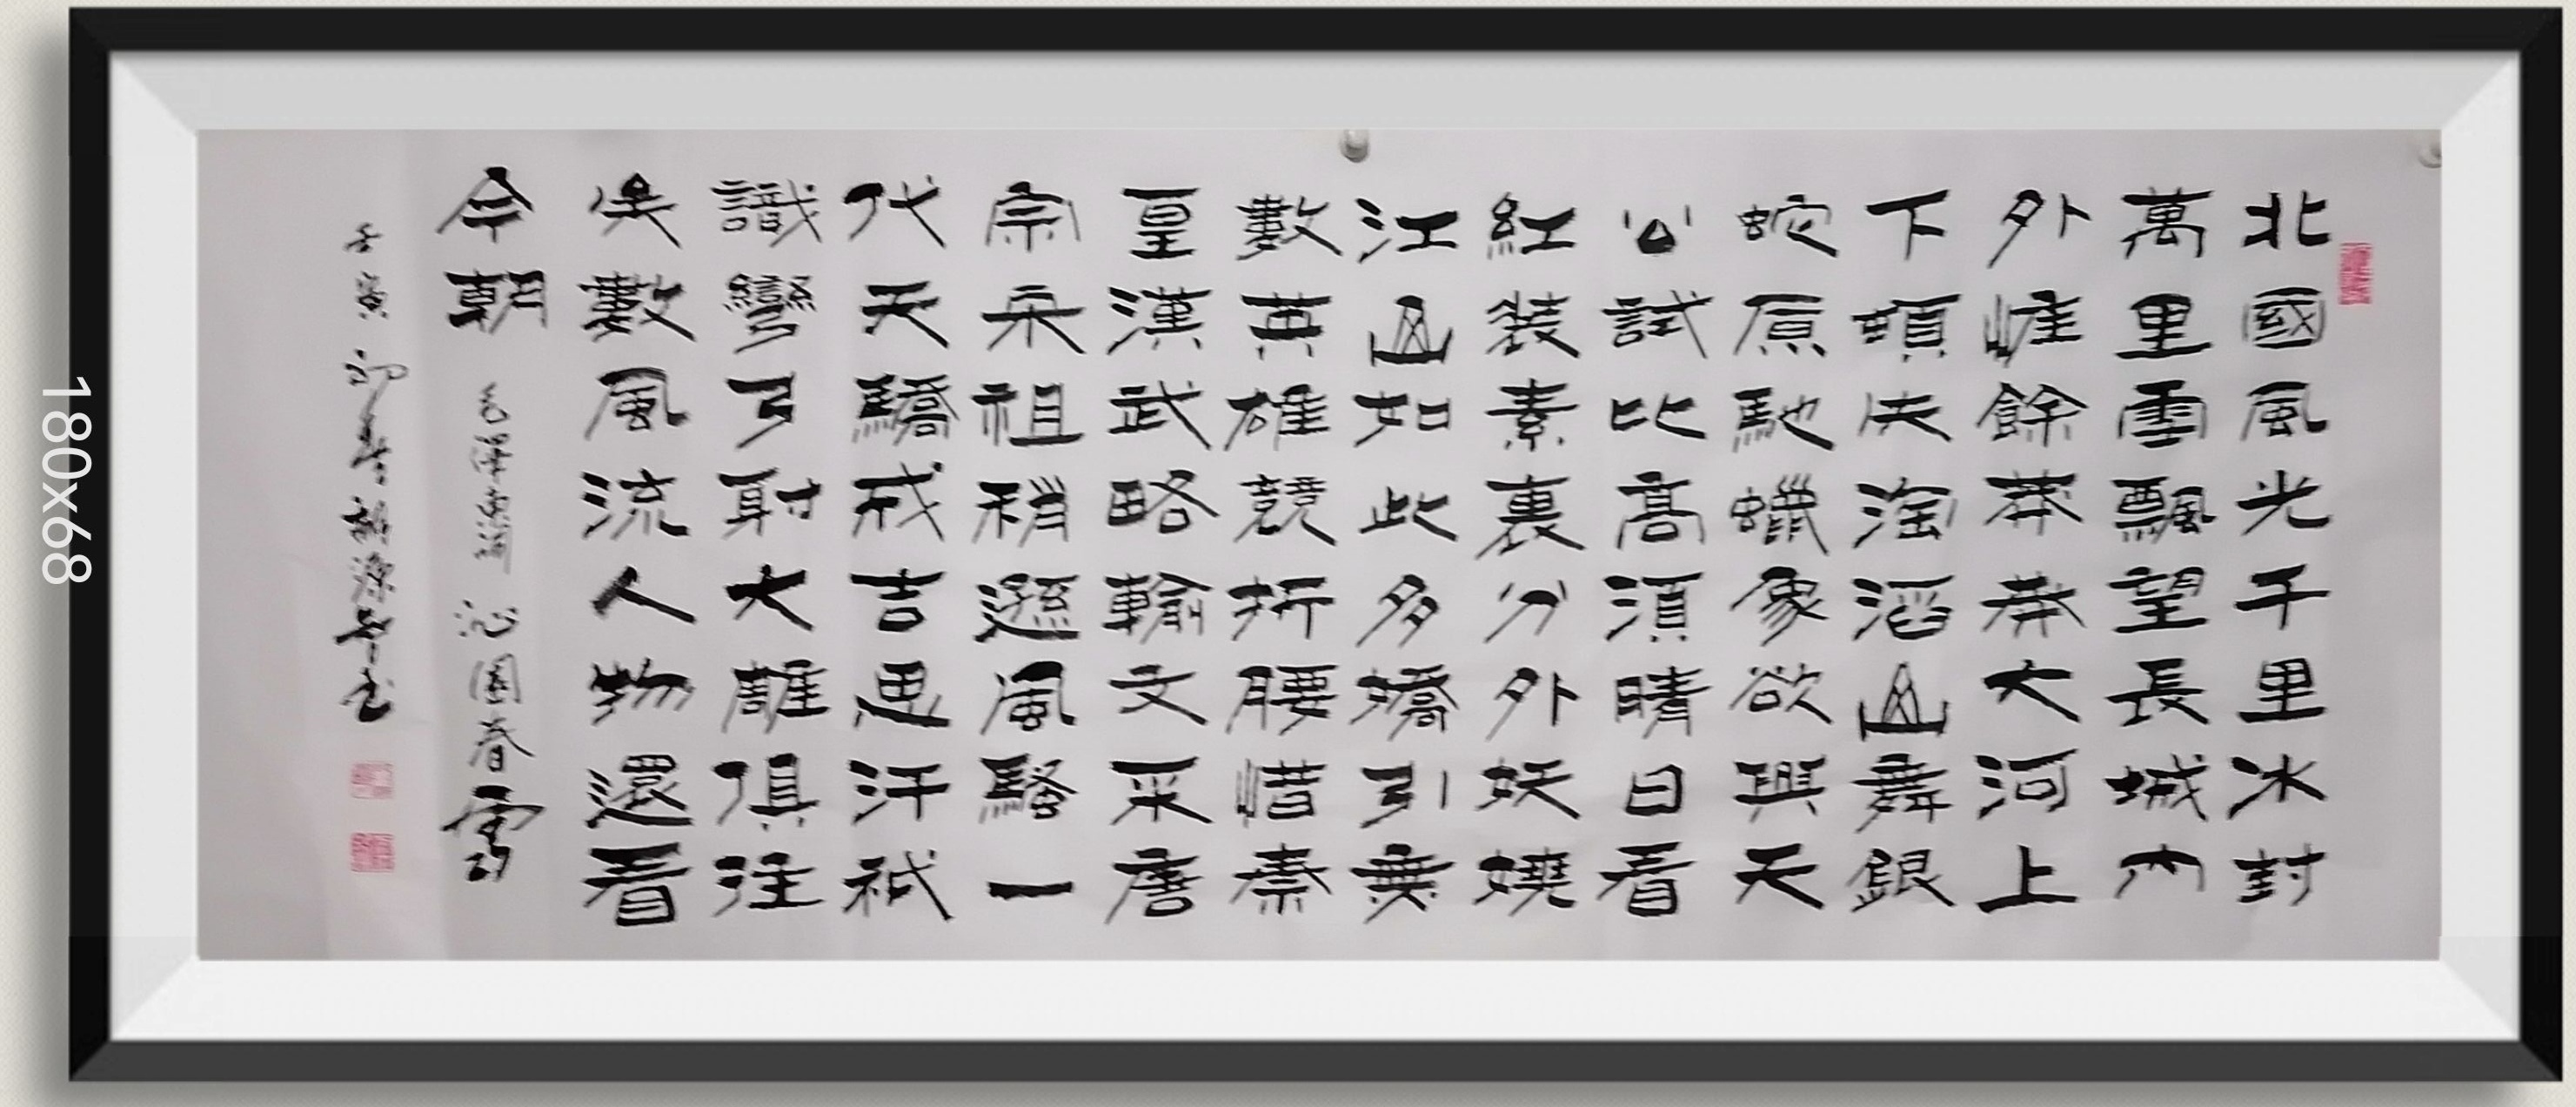 北國風光千里冰封
萬里雪飄望長城內
外惟餘莽莽大河上
下頓失滔滔山舞銀
蛇原馳蠟象欲與天
公試比高須晴日看
紅裝素裹分外妖嬈
江山如此多嬌引無
數英雄競折腰惜秦
皇漢武略輸文采唐
宗宋祖稍遜風騷一
代天驕成吉思汗衹
識彎弓射大雕俱往
矣數風流人物還看
今朝 毛澤東詞 沁園春雪
壬寅初春 書
180x68